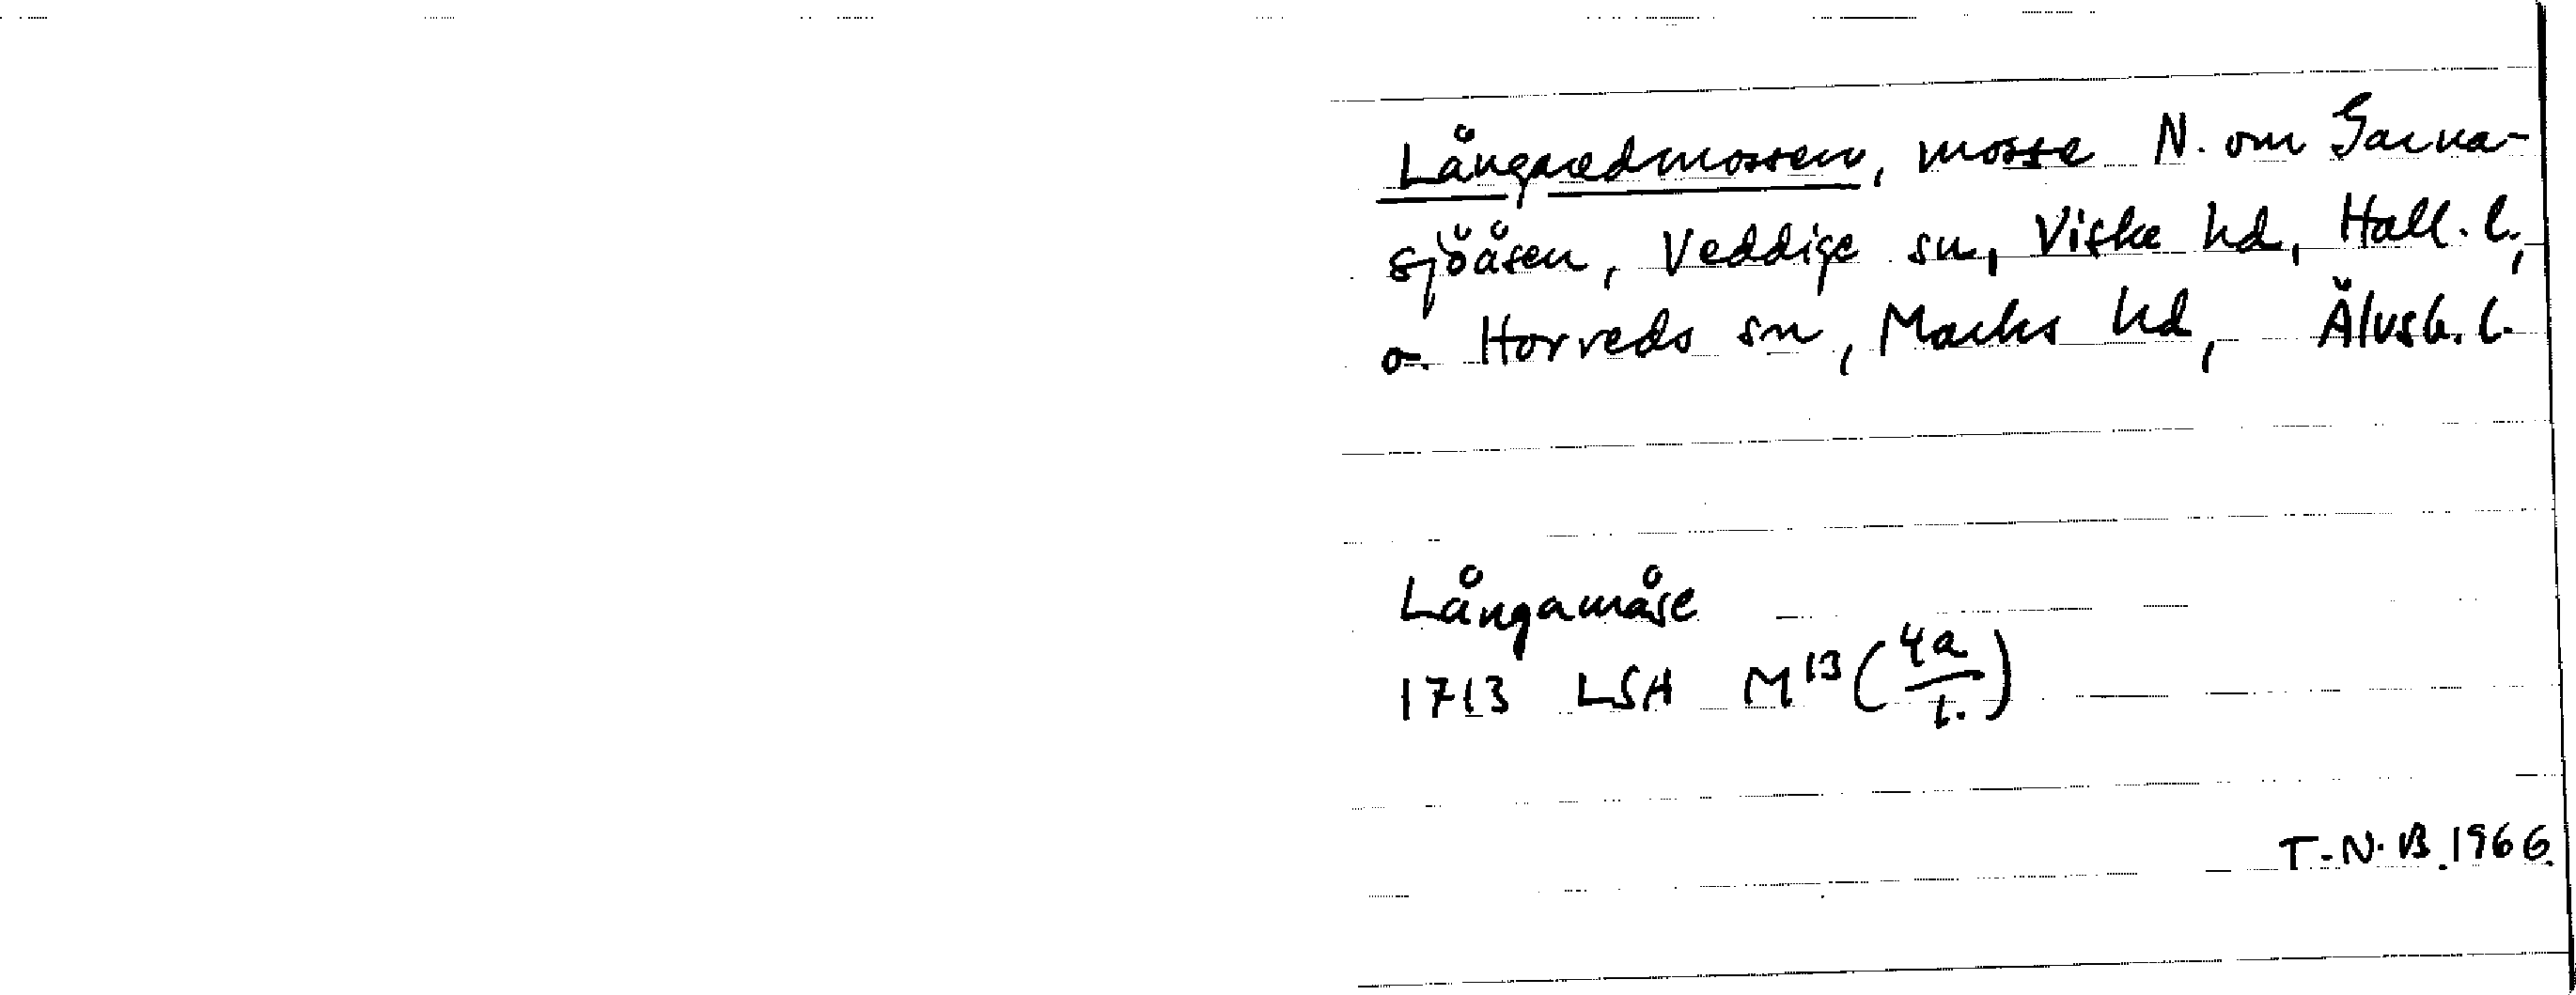 Långaredmossen, mosse N. om Sarna-
sjöåsen, Veddige sn, Viske hd, Hall. l.,
o. Horreds sn, Marks hd, Älvsb. l.
Långamåse
1713 LSA M¹³ (4a/1.)
T-N.B. 1966.